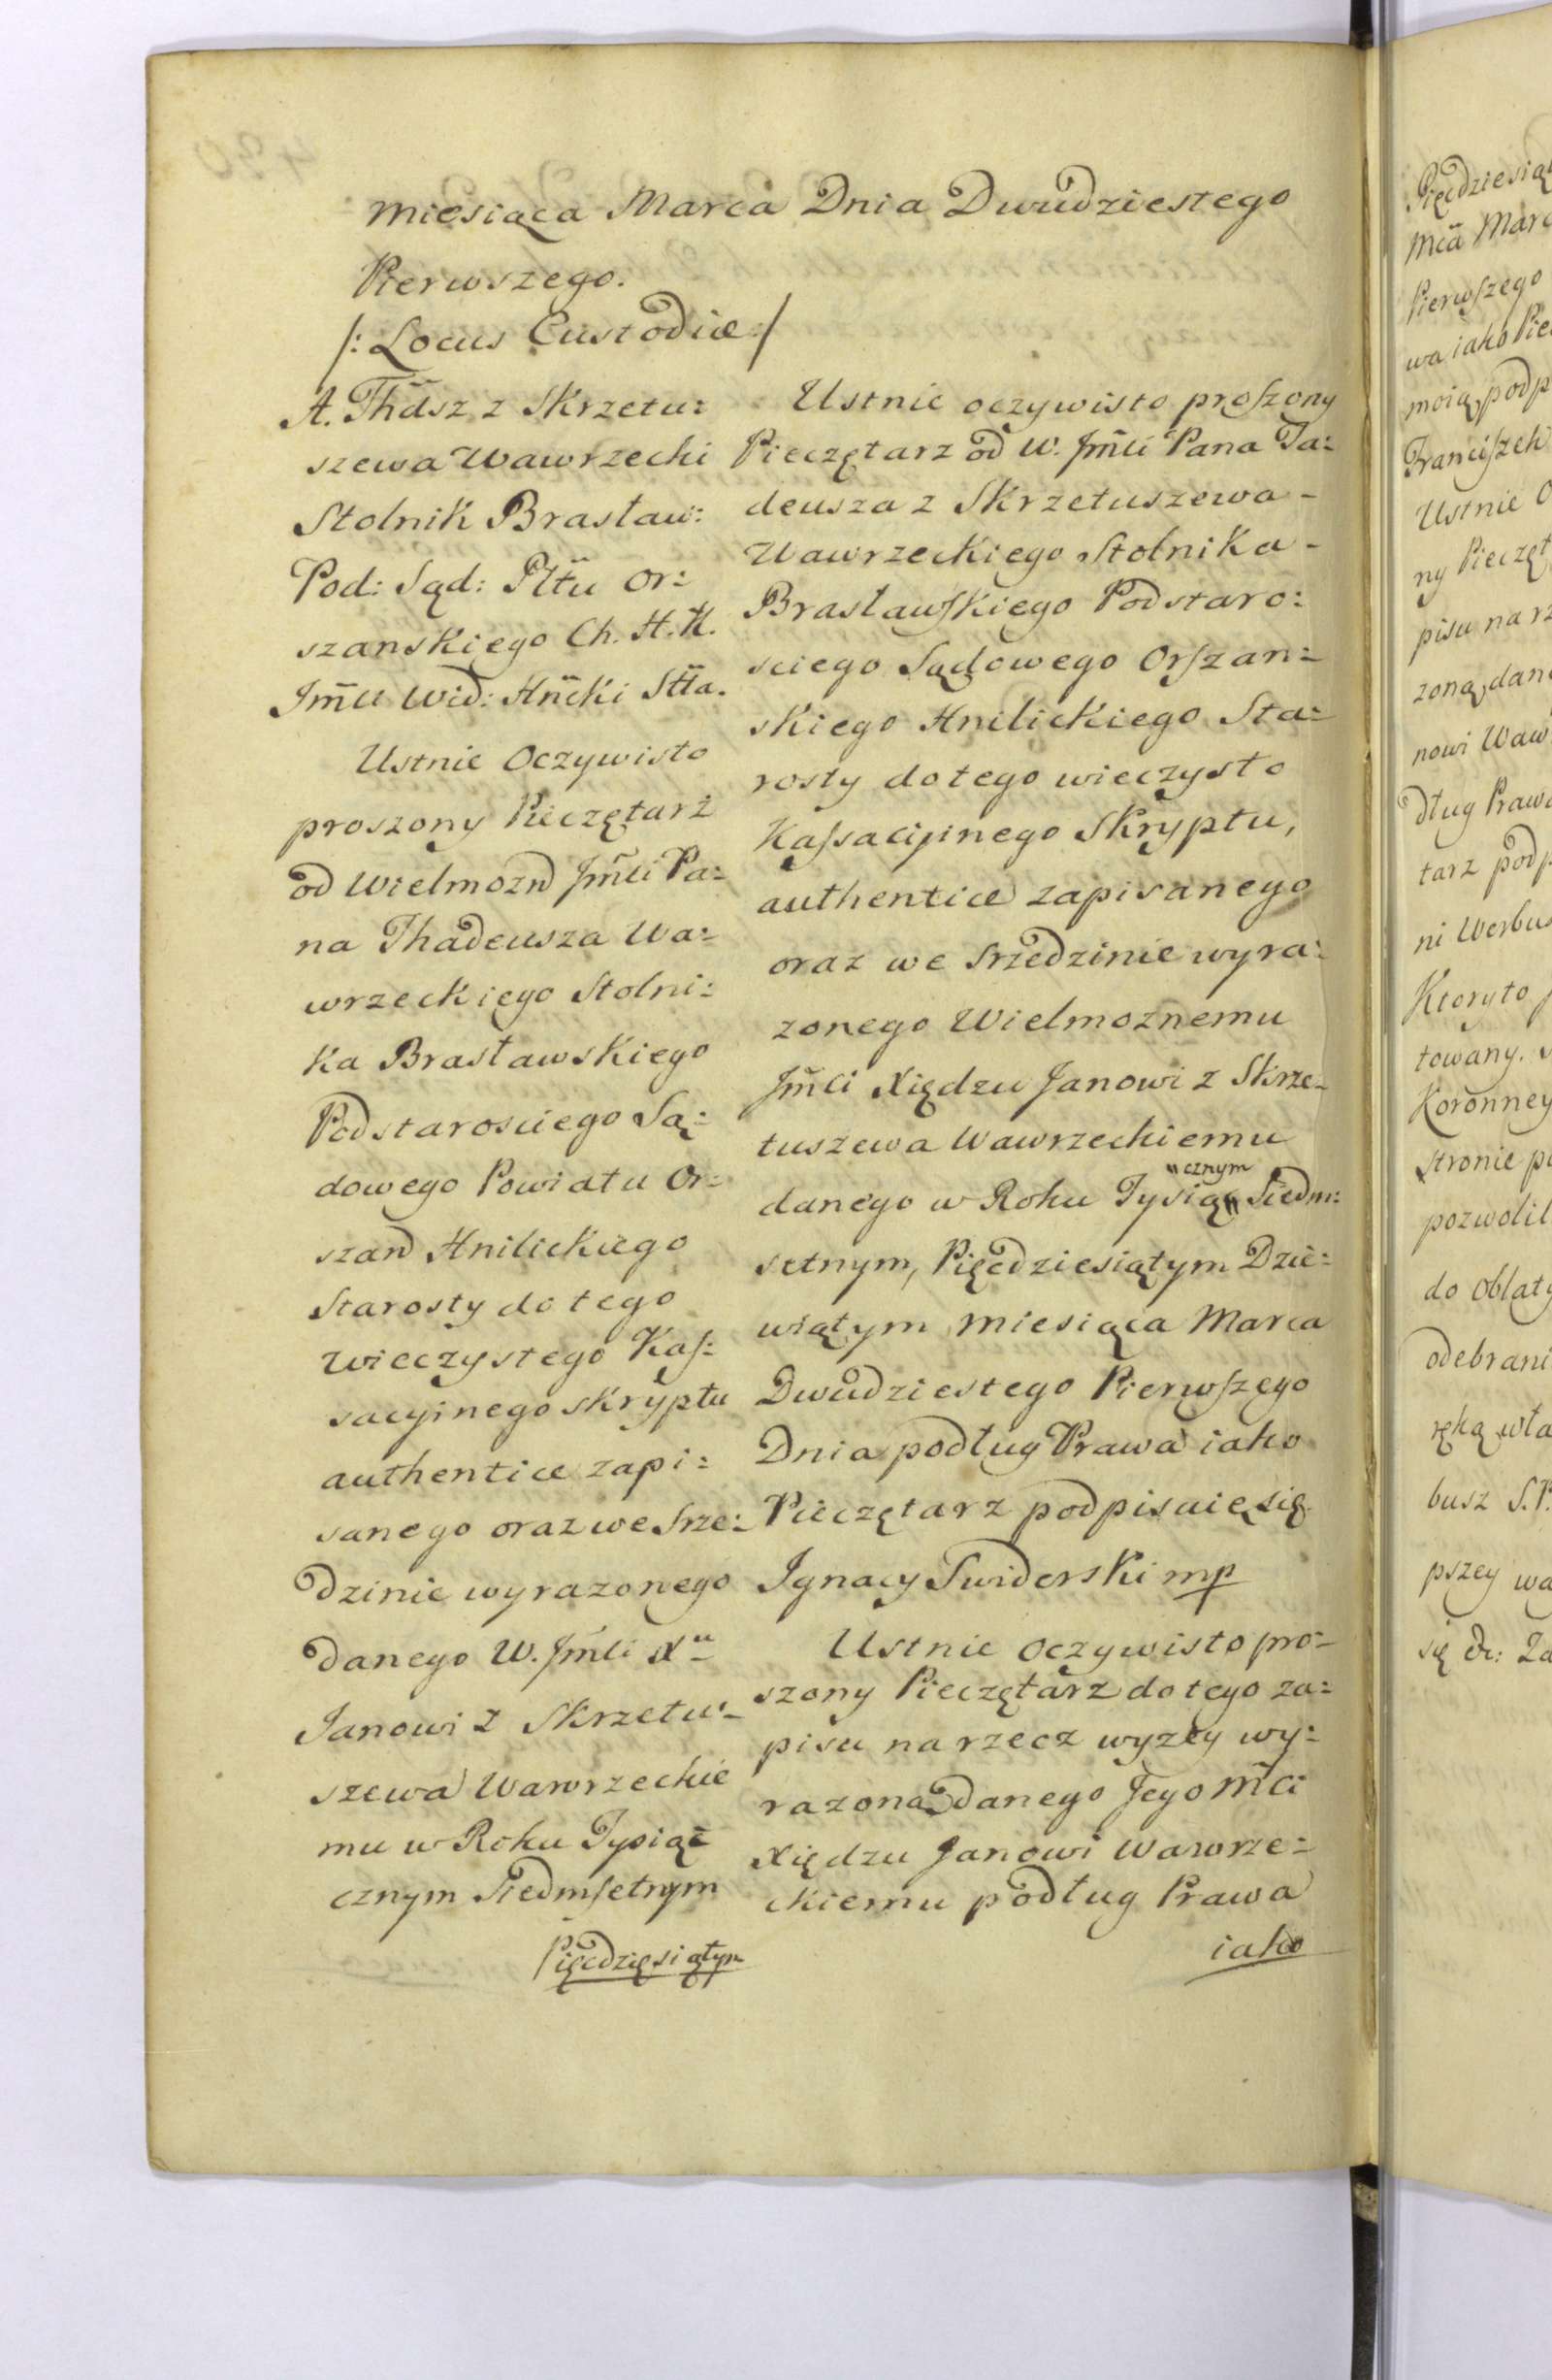 Miesiąca Marca Dnia Dwudziestego
Pierwszego.
/: Locus Custodiæ :/
A. Thdsz z Skrzetu:
szewa Wawrzecki
Stolnik Brasław:
Pod: Sąd: Pttu Or:
szanskiego Ch. H. K.
Jmci Wid: Hncki Stta.
Ustnie Oczywisto
proszony Pieczętarz
od Wielmozn Jmci Pa:
na Thadeusza Wa:
wrzeckiego Stolni:
ka Brasławskiego
Podstarosciego Są:
dowego Powiatu Or:
szan Hnilickiego
Starosty do tego
Wieczystego Kas:
sacyinego skryptu
authentice zapi:
sanego oraz we srze:
dzinie wyrazonego
danego W. Jmci Xu
Janowi z Skrzetu:
szewa Wawrzeckie
mu w Roku Tysiąc
cznym Siedmsetnym
Pięcdziesiątym
Ustnie oczywisto proszony
Pieczętarz od W. Jmci Pana Ta:
deusza z Skrzetuszewa -
Wawrzeckiego Stolnika -
Brasławskiego Podstaro:
sciego Sądowego Orszan:
skiego Hnilickiego Sta:
rosty do tego wieczysto
Kassacijnego Skryptu,
authentice zapisanego
oraz we srzedzinie wyra:
zonego Wielmoznemu
Jmci Xiędzu Janowi z Skrze:
tuszewa Wawrzeckiemu
danego w Roku Tysiącznym Siedm:
setnym, Pięcdziesiątym Dzie:
wiątym Miesiąca Marca
Dwudziestego Pierwszego
Dnia podług Prawa iako
Pieczętarz podpisuię się
Ignacy Swiderski mp
Ustnie oczywisto pro:
szony Pieczętarz do tego za:
pisu na rzecz wyzey wy:
razoną danego Jego Mci
Xiędzu Janowi Wawrze:
ckiemu podług Prawa
iako
Pięcdziesiąt
Mca Marc
Pierwszego
wa iako Pie
moią podp
Franciszek
Ustnie O
ny Pieczęt
pisu na rz
zoną dane
nowi Waw
dług Prawa
tarz podp
ni Werbus
Ktoryto
towany.
Koronney
stronie p
pozwolil
do Oblaty
odebrani
ręką wła
busz S.P.
pszey wa
się &: Za